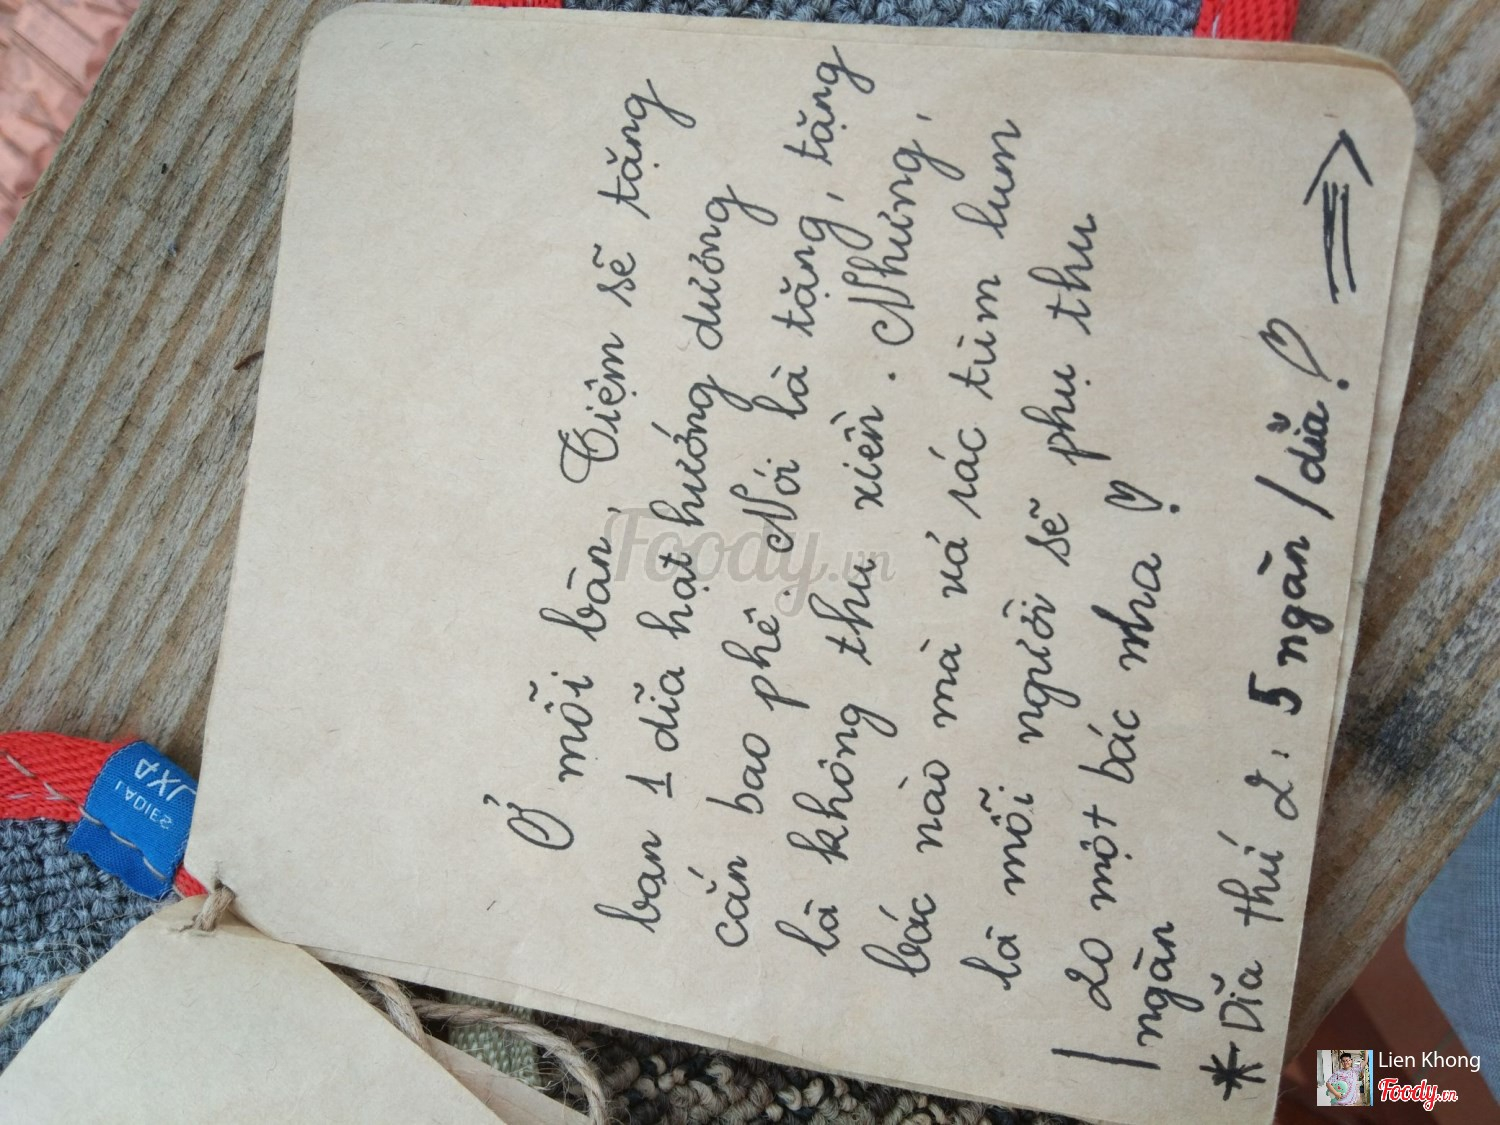 Ở mỗi bàn, Tiệm sẽ tặng
bạn 1 dĩa hạt hướng dương
cắn bao phê. Nói là tặng, tặng
là không thu xiền. Nhưng,
bác nào mà xả rác tùm lum
là mỗi người sẽ phụ thu
20 một bác nha
ngàn
* Dĩa thứ 2: 5 ngàn/dĩa!
LADIES
Foody.vn
Lien Khong
Foody.vn